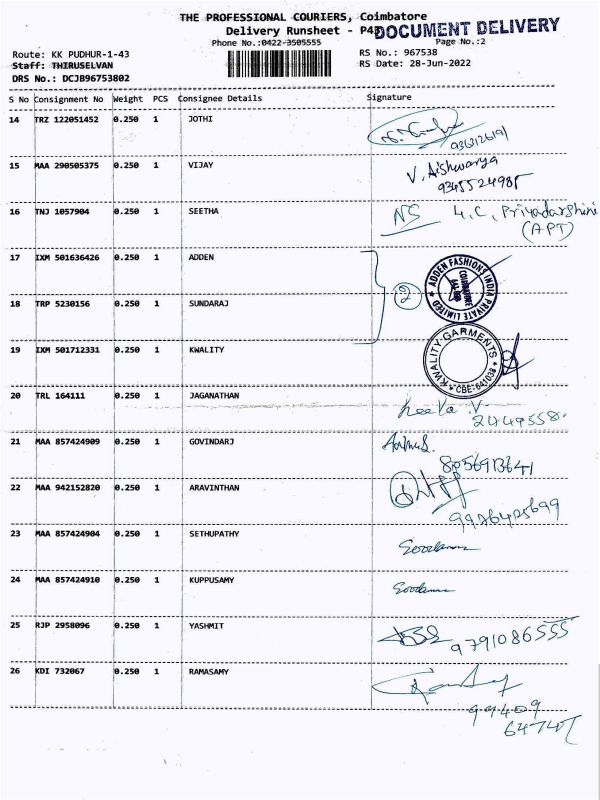 THE PROFESSIONAL COURIERS, Coimbatore
Delivery Runsheet - P43
DOCUMENT DELIVERY
Phone No.:0422-3505555
Page No.:2
Route: KK PUDHUR-1-43
RS No.: 967538
Staff: THIRUSELVAN
RS Date: 28-Jun-2022
DRS No.: DCJB96753802
S No Consignment No Weight PCS Consignee Details Signature
14 TRZ 122051452 0.250 1 JOTHI
15 MAA 290505375 0.250 1 VIJAY V. Aishwarya
9345524985
16 TNJ 1057904 0.250 1 SEETHA NS 4. C. Priyadarshini
(APT)
17 IXM 501636426 0.250 1 ADDEN
ADDEN FASHIONS INDIA PRIVATE LIMITED
18 TRP 5230156 0.250 1 SUNDARAJ 2
19 IXM 501712331 0.250 1 KWALITY
KWALITY GARMENTS
CBE-641038
20 TRL 164111 0.250 1 JAGANATHAN
21 MAA 857424909 0.250 1 GOVINDARJ
8056913641
22 MAA 942152820 0.250 1 ARAVINTHAN
9976425699
23 MAA 857424904 0.250 1 SETHUPATHY
24 MAA 857424910 0.250 1 KUPPUSAMY
25 RJP 2958096 0.250 1 YASHMIT
9791086555
26 KDI 732067 0.250 1 RAMASAMY
99409